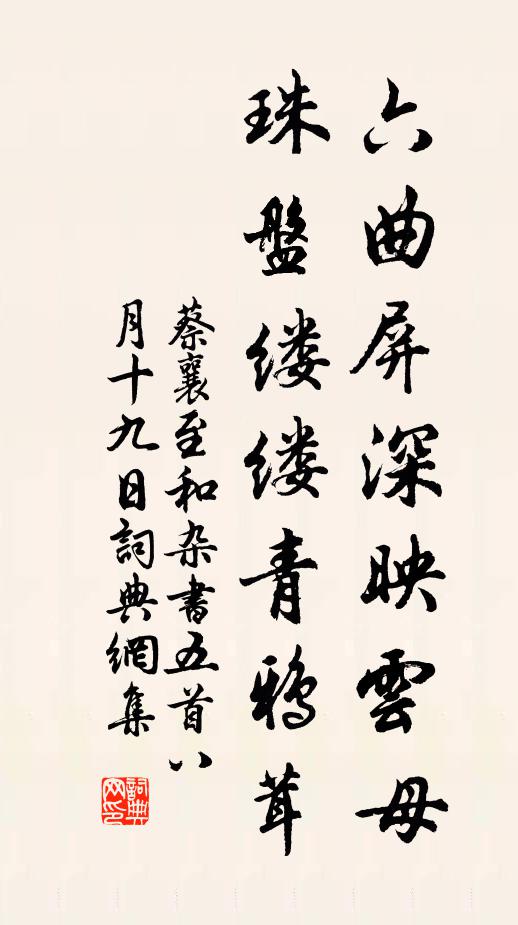 六曲屏深映雲母
珠盤缕缕青鴉茸
蔡襄至和杂書五首八
月十九日詞典網集
詞典
网印